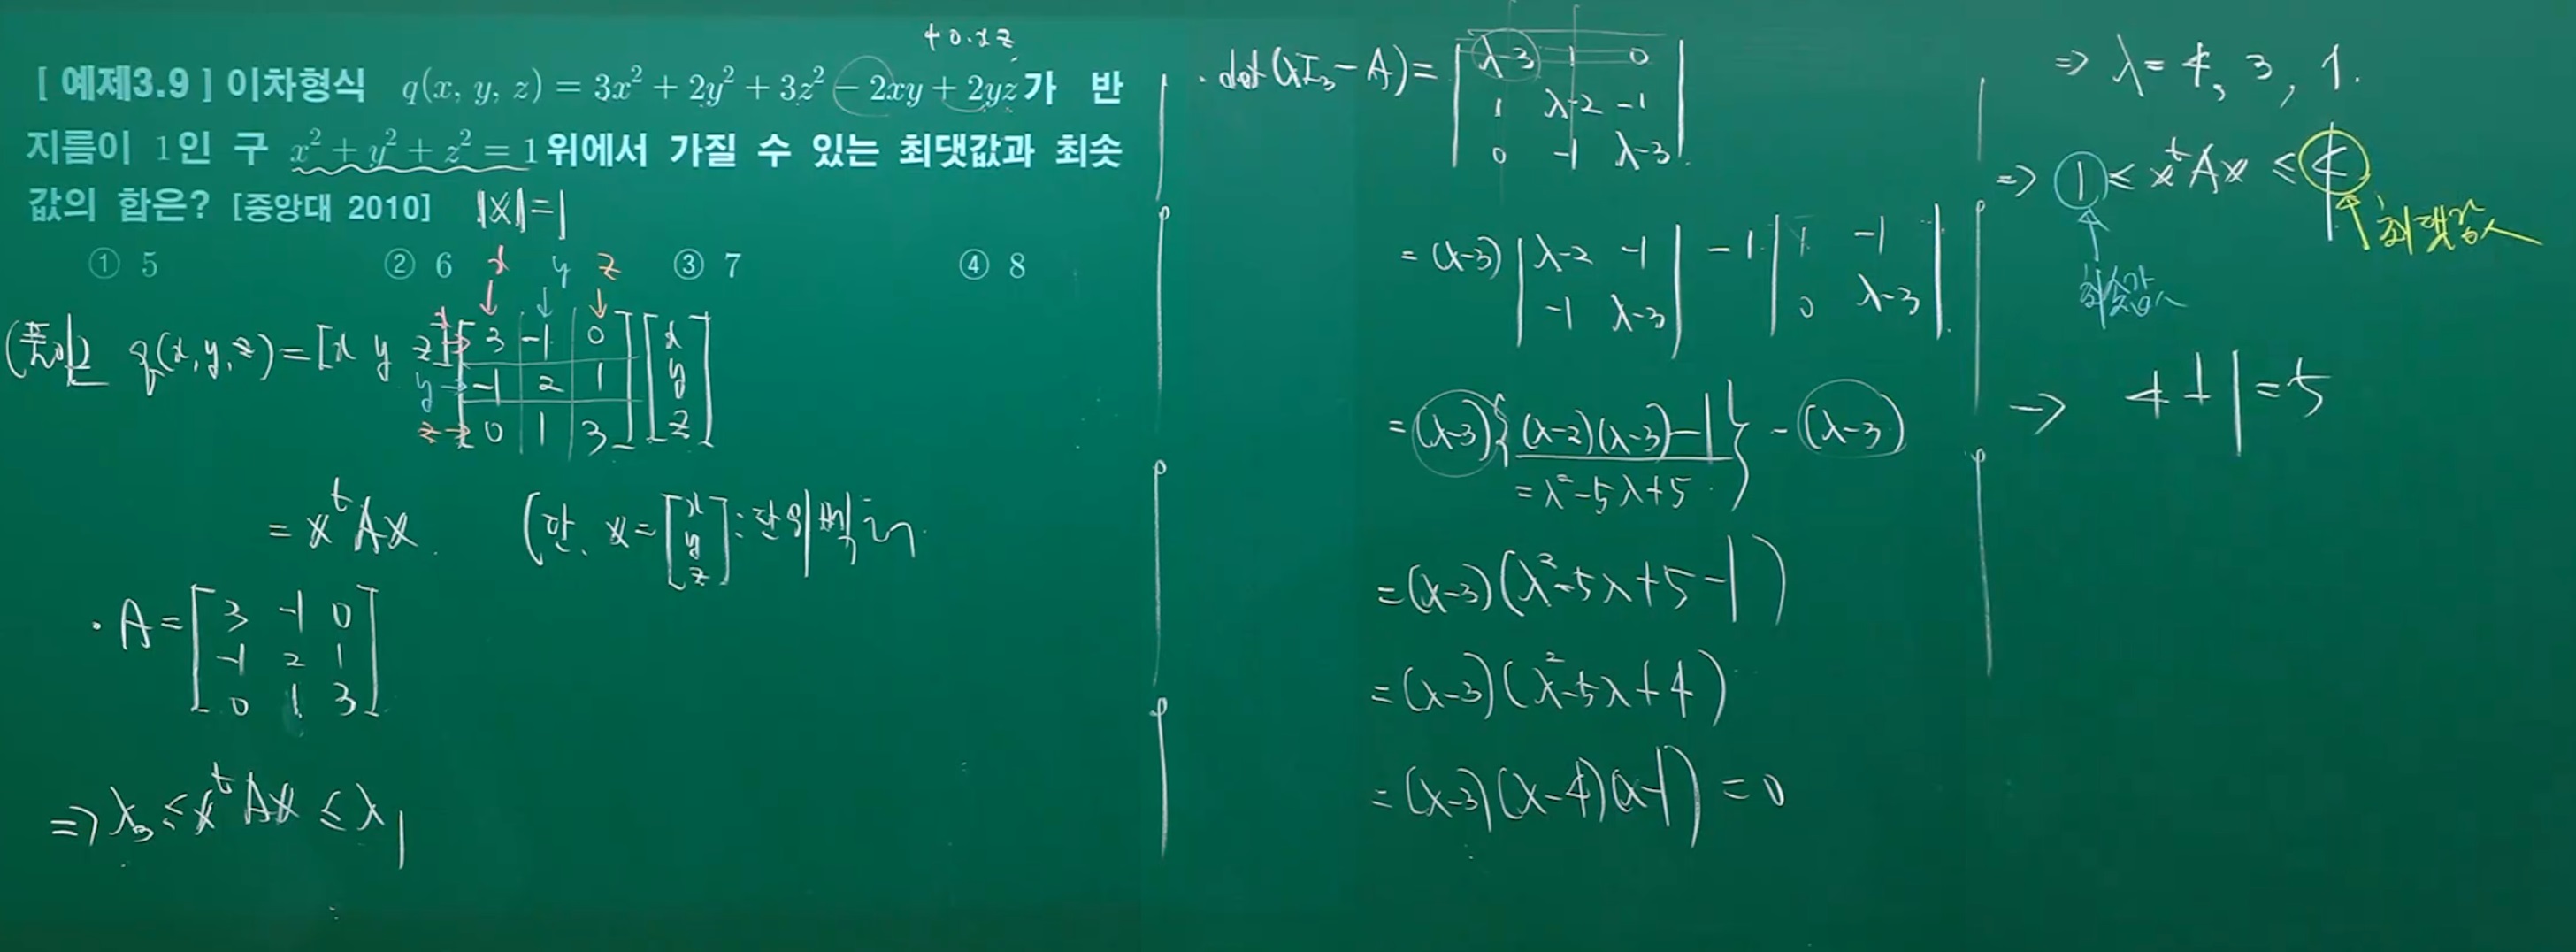 + 0·xz
[ 예제3.9 ] 이차형식 q(x, y, z) = 3x² + 2y² + 3z² − 2xy + 2yz가 반
지름이 1인 구 x² + y² + z² = 1 위에서 가질 수 있는 최댓값과 최솟
값의 합은? [중앙대 2010] ‖x‖=1
① 5 ② 6 ③ 7 ④ 8
x y z
(풀이) q(x,y,z)=[x y z] [3 -1 0] [x]
y [-1 2 1] [y]
z [0 1 3] [z]
= xᵗAx (단, x= [x y z] : 단위벡터
· A= [3 -1 0]
[-1 2 1]
[0 1 3]
⇒ λ₃ ≤ xᵗAx ≤ λ₁
· det(λI₃-A)= |λ-3 1 0|
|1 λ-2 -1|
|0 -1 λ-3|
= (λ-3) |λ-2 -1| -1 |1 -1|
|-1 λ-3| |0 λ-3|
= (λ-3){(λ-2)(λ-3)-1} - (λ-3)
= λ²-5λ+5
= (λ-3)(λ²-5λ+5-1)
= (λ-3)(λ²-5λ+4)
= (λ-3)(λ-4)(λ-1) = 0
⇒ λ= 4, 3, 1.
⇒ 1 ≤ xᵗAx ≤ 4
최댓값
최솟값
→ 4+1=5